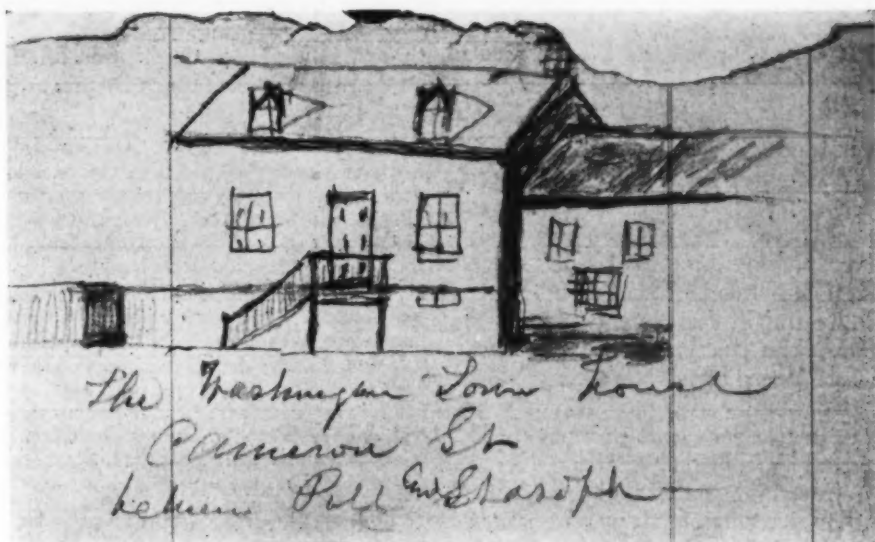 The Washington Town house
Cameron St
between Pitt and St Asaph